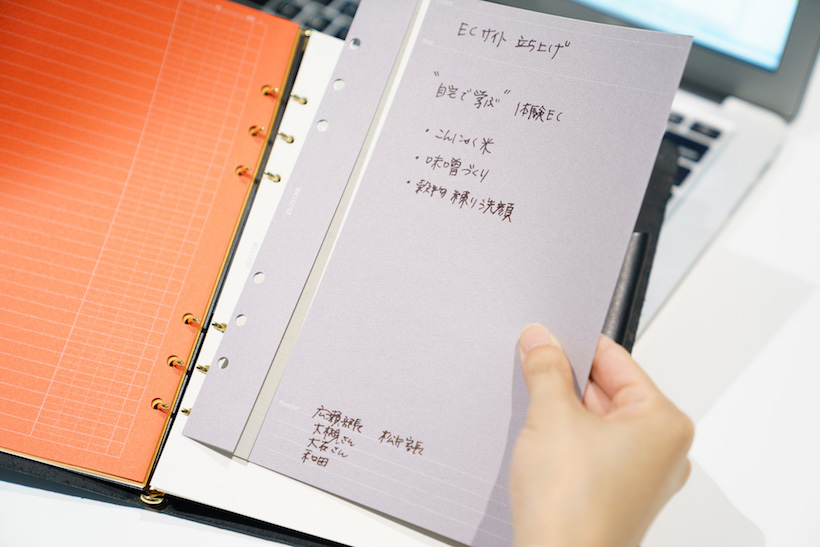 ECサイト 立ち上げ
"自宅で学ぶ" 体験EC
・こんにゃく米
・味噌づくり
・穀物 練り洗顔
広瀬部長 松井室長
大槻さん
大石さん
和田